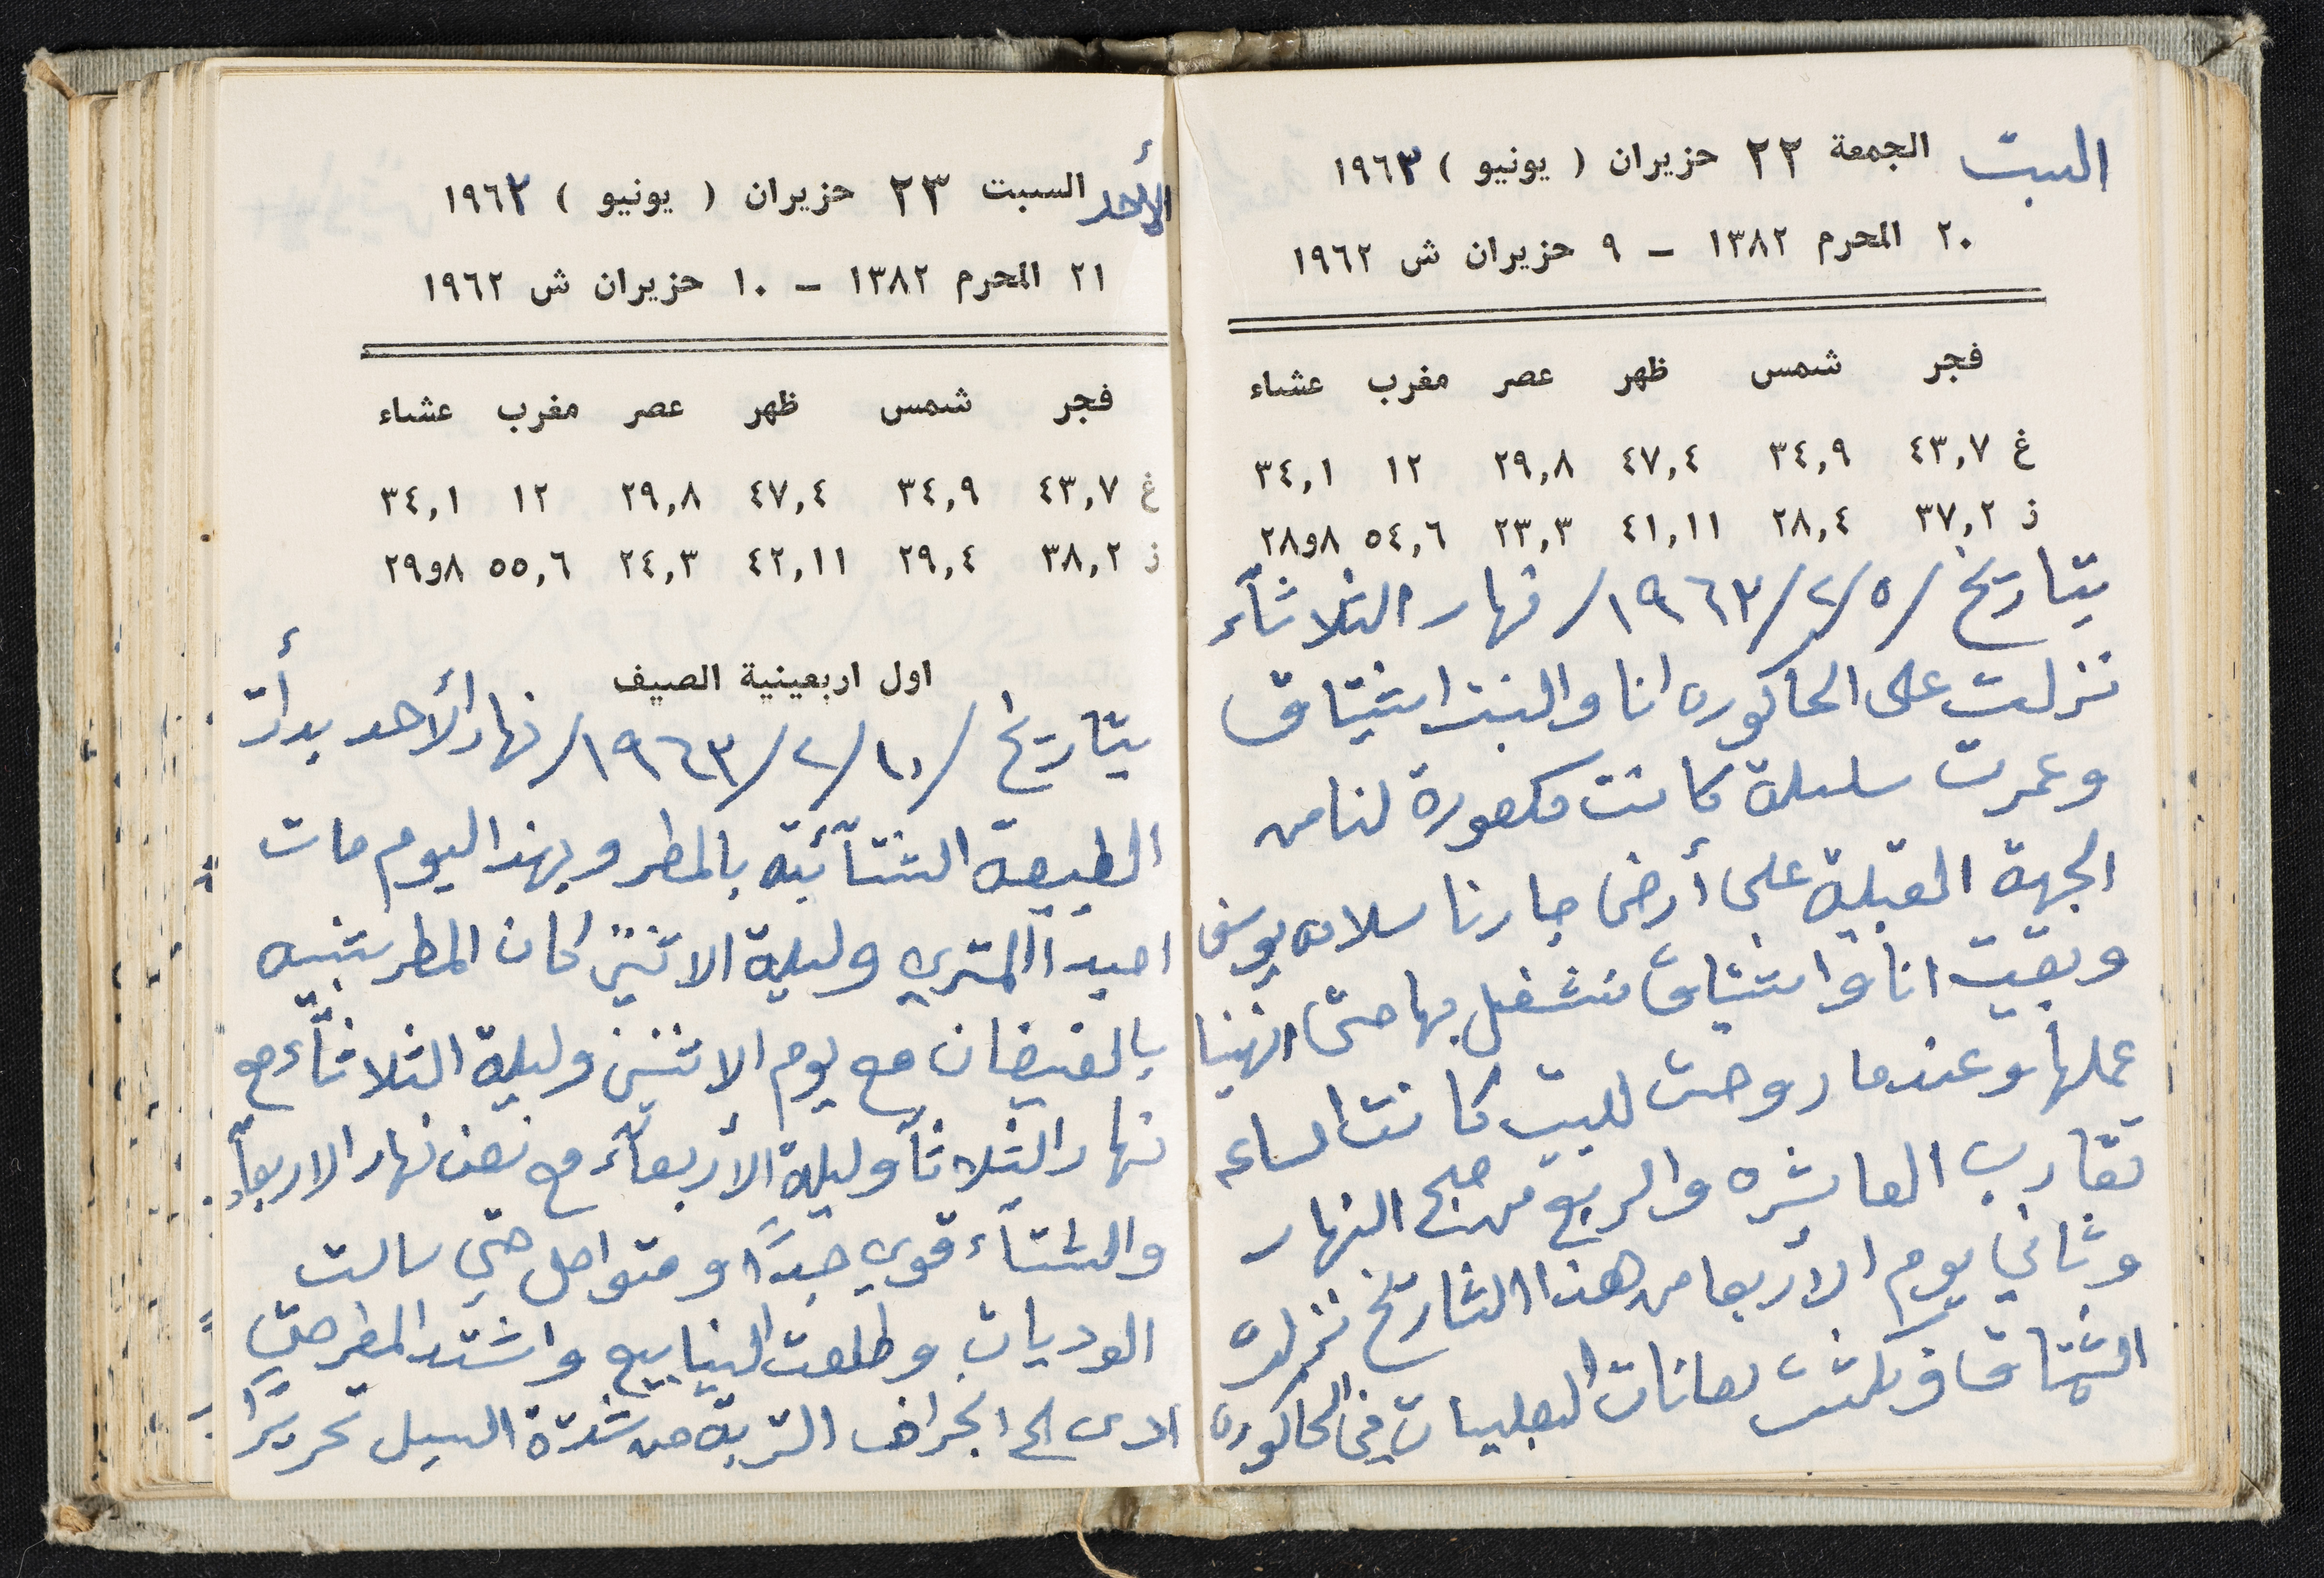 السبت الجمعة ٢٢ حزيران ( يونيو ) ١٩٦٣
٢٠ المحرم ١٣٨٢ – ٩ حزيران ش ١٩٦٢
فجر شمس ظهر عصر مغرب عشاء
غ ٤٣,٧ ٣٤,٩ ٤٧,٤ ٢٩,٨ ١٢ ٣٤,١
ز ٣٧,٢ ٢٨,٤ ٤١,١١ ٢٣,٣ ٥٤,٦ ٨و٢٨
بتاريخ /٥/٢/١٩٦٣/ نهار الثلاثآء
نزلت على الحاكوره انا والبنت اشتياق
وعمرت سلسلة كانت مكعورة لنا من
الجهة القبلية على أرض جارنا سلامه يوسف
وبقيت انا واشتياق نشغل بها حتى انهينا
عملها وعندما روحت للبيت كانت الساعه
تقارب العاشره والربع من صبح النهار
وثاني يوم الأربعا من هذا التاريخ نزلت
اشتياق وبكشت لعانات البعليات في الحاكوره
الأحد السبت ٢٣ حزيران ( يونيو ) ١٩٦٣
٢١ المحرم ١٣٨٢ – ١٠ حزيران ش ١٩٦٢
فجر شمس ظهر عصر مغرب عشاء
غ ٤٣,٧ ٣٤,٩ ٤٧,٤ ٢٩,٨ ١٢ ٣٤,١
ز ٣٨,٢ ٢٩,٤ ٤٢,١١ ٢٤,٣ ٥٥,٦ ٨و٢٩
اول اربعينية الصيف
بتاريخ /١٠/٢/١٩٦٣/ نهار الأحد بدأت
الطبيعة الشتآئية بالمطر وبهذا اليوم مات
وليلة الاثنين كان المطر شبيه
بالفيضان مع يوم الاثنين وليلة الثلاثآء مع
نهار الثلاثآ وليلة الأربعآء مع نصف نهار الاربعآ
والشتآء قوي جداً ومتواصل حتى سالت
الوديان وطلعت الينابيع واشتد المطر حتى
ادى الى انجراف التربة من شدة السيل تحريرًا